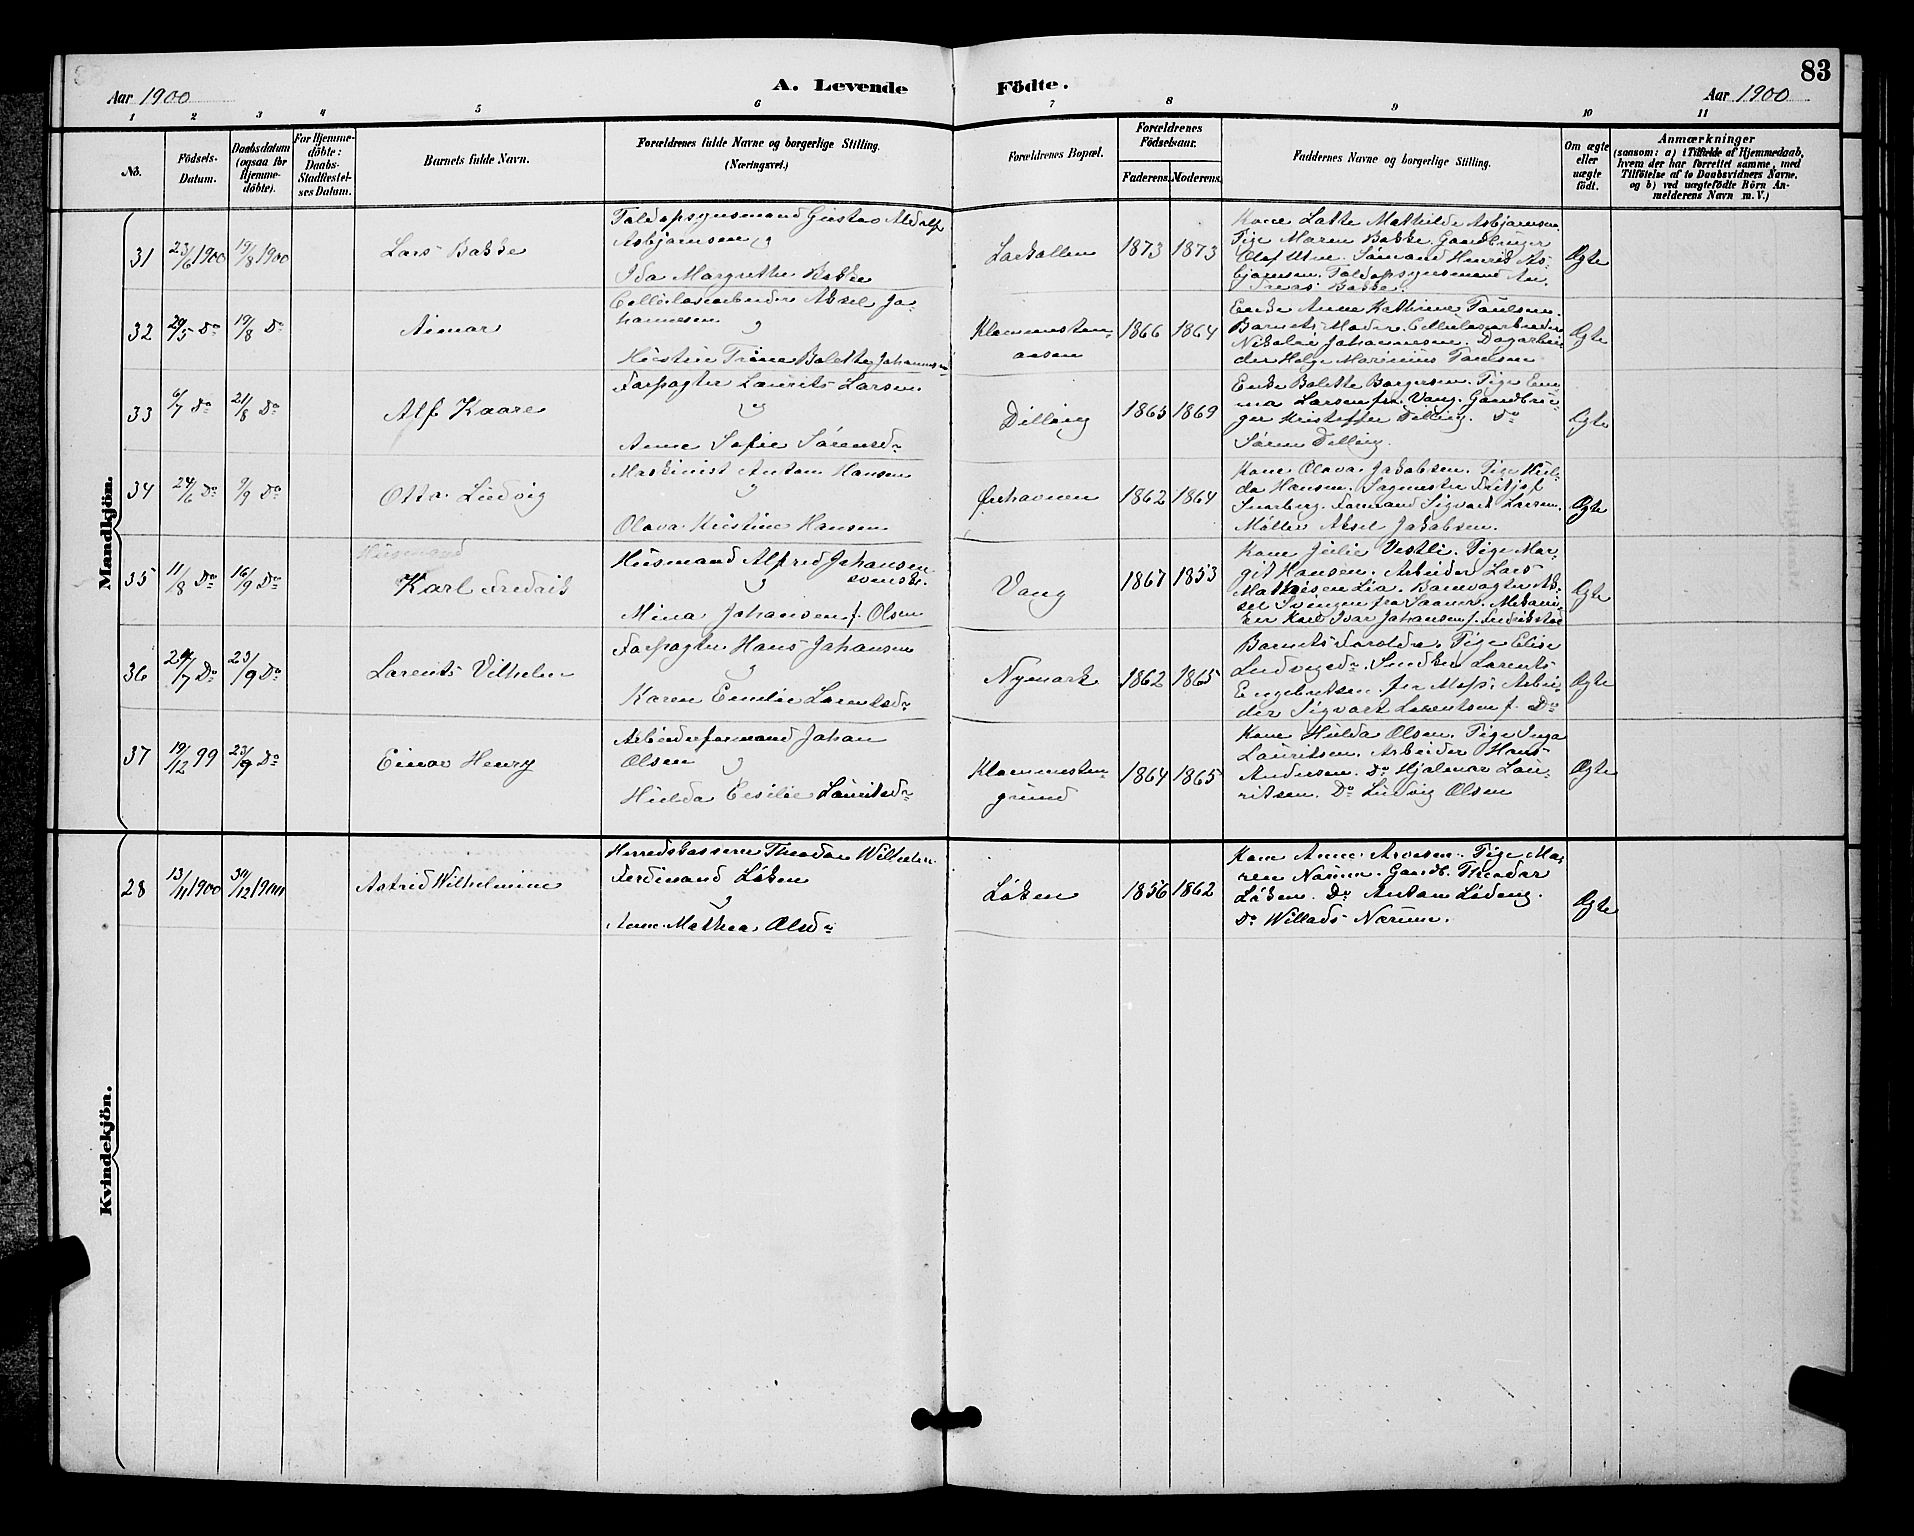 83
Aar 1900
A. Levende Födte.
Aar 1900
1 2 3 4 5 6 7 8 9 10 11
No.
Födsels-
Datum.
Daabsdatum
(ogsaa for
Hjemme-
döbte).
For Hjemme-
döbte:
Daabs-
Stadfæstel-
ses Datum.
Barnets fulde Navn.
Forældrenes fulde Navne og borgerlige Stilling.
(Næringsvei.)
Forældrenes Bopæl.
Forældrenes
Födselsaar.
Faderens. Moderens.
Faddernes Navne og borgerlige Stilling.
Om ægte
eller
uægte
födt.
Anmærkninger
(saasom: a) i Tilfælde af Hjemmedaab,
hvem der har forrettet samme, med
Tilföielse af to Daabsvidners Navne,
og b) ved uægtefödte Börn An-
melderens Navn m. V.)
Mandkjön.
31 23/6 1900 19/8 1900
Lars Bakke
Toldopsynsmand Gustav Adolf
Asbjørnsen og
Ida Margrethe Bakke
Larkollen 1873 1873
Kone Lotte Mathilde Asbjørnsen.
Pige Maren Bakke. Gaardbruger
Olaf Uten. Sømand Henrik As-
bjørnsen. Toldopsynsmand An-
dreas Bakke.
Ægte
32 29/5 Do 19/8 Do
Aimar
Cellulosearbeider Aksel Jo-
hannesen
og
Kristine Trine Bolette Johannesen
Klommesten-
aasen
1866 1864
Enke Anne Kathrine Paulsen.
Barnets Moder. Cellulosearbeider
Nikolai Johannesen. Dagarbei-
der Helge Marinius Paulsen
Ægte
33 6/7 Do 21/8 Do
Alf Kaare
Forpagter Laurits Larsen
og
Anne Sofie Sørensdr
Dilling 1865 1869
Enke Bolette Borgersen. Pige Em-
ma Larsen fra Vang. Gaardbru-
ger Kristoffer Dilling. Do
Søren Dilling.
Ægte
34 24/6 Do 9/9 Do
Otto Ludvig
Maskinist Anton Hansen
og
Olava Kristine Hansen
Ørehavnen 1862 1864
Kone Olava Jakobsen. Pige Hul-
da Hansen. Sagmester Fritjof
Snarberg. Formand Sigvart Larsen.
Møller Aksel Jakobsen.
Ægte
35 11/8 Do 16/9 Do
Husmand
Karl Fredrik
Husmand Alfred Johansen
svensk.
og
Mina Johansen f. Olsen
Vang 1867 1853
Kone Julie Vestli. Pige Mar-
git Hansen. Arbeider Lars
Mathisen Lia. Banevogter Ak-
sel Svengen fra Saaner. Mekani-
ker Karl Ivar Johansen f. Fredrikstad
Ægte
36 29/7 Do 23/9 Do
Lorents Vilhelm
Forpagter Hans Johansen
og
Karen Emilie Lorentsdr
Nymark 1862 1865
Barnets Forældre. Pige Elise
Ludvigsdr. Snedker Lorents
Engebretsen fra Moss. Arbei-
der Sigvart Lorentsen f. Do
Ægte
37 19/12 99 23/9 Do
Einar Henry
Arbeiderformand Johan
Olsen
og
Hulda Cesilie Lauritsdr
Klommesten-
grund
1864 1865
Kone Hulda Olsen. Pige Inga
Lauritsen. Arbeider Hans
Andersen. Do Hjalmar Lau-
ritsen. Do Ludvig Olsen
Ægte
Kvindekjön.
28 13/11 1900 30/12 1900
Astrid Wilhelmine
Herredskasserer Theodor Wilhelm
Ferdinand Løken
og
Anne Mathea Olsdr
Løken 1856 1862
Kone Anne Arvesen. Pige Ma-
ren Narum. Gaardb. Theodor
Løken. Do Anton Løding.
Do Willads Narum.
Ægte